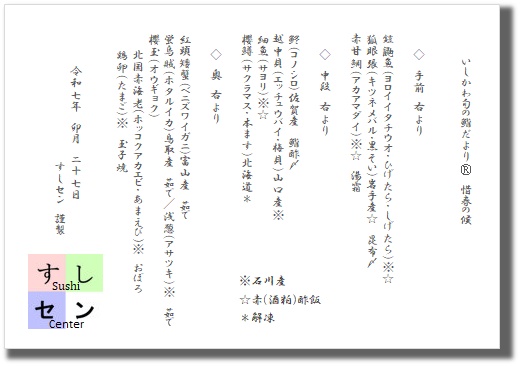 いしかわ旬の鮨だより® 惜春の候
◇ 手前 右より
鎧鼬魚(ヨロイイタチウオ・ひげたら・しげたら)※☆
狐眼張(キツネメバル・黒そい)岩手産☆ 昆布〆
赤甘鯛(アカアマダイ)※☆ 湯霜
◇ 中段 右より
鮗(コノシロ)佐賀産 鮨酢〆
越中貝(エッチュウバイ・梅貝)山口産※
細魚(サヨリ)※☆
櫻鱒(サクラマス・本ます)北海道*
◇ 奥 右より
紅頭矮蟹(ベニズワイガニ)富山産 茹で
蛍烏賊(ホタルイカ)鳥取産 茹で/浅葱(アサツキ)※ 茹で
櫻玉(オウギョク)
北国赤海老(ホッコクアカエビ・あまえび)※ おぼろ
鶏卵(たまご)※ 玉子焼
令和七年 卯月 二十七日
すしセン 謹製
※石川産
☆赤(酒粕)酢飯
*解凍
すし
Sushi
セン
Center